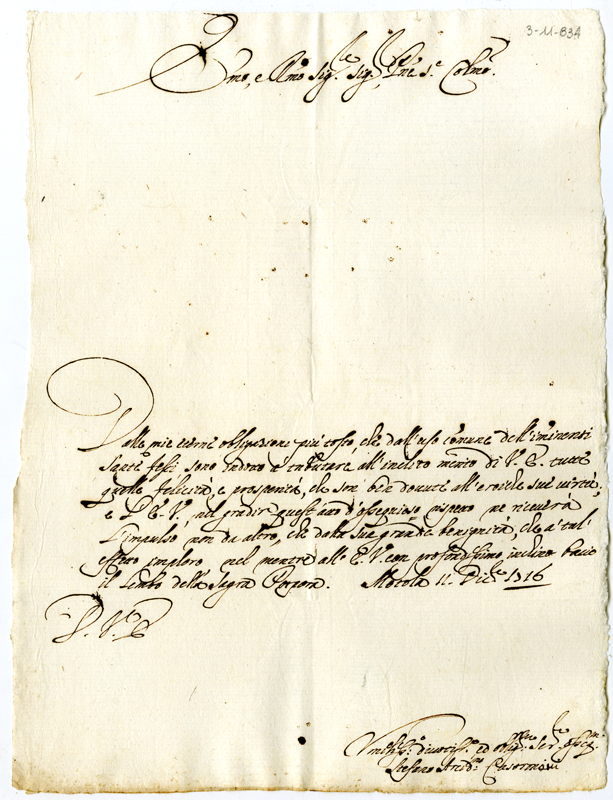 3-11-834
Emo, e Rmo Sig.re Sig.re Pne e Colmo.
Dalle mie eterne obligazioni piu tosto, che dall'uso comune dell'iminenti
Sante feste sono indotto à tributare all'inclito merito di V. E. tutte
quelle felicità, e prosperità, che son ben dovute all'eroiche sue virtù,
e l'E. V., nel gradir quest'atto d'ossequioso rispetto ne riceverà
l'impulso non da altro, che dalla sua grande benignità, che à tal'
effetto imploro nel mentre all'E. V. con profondissimo inchino bacio
il lembo della Sagra Porpora. Motola 11. Dice 1716
D. V.a E.
Vmiliss.o divotiss.o ed oblig.mo Ser.re osseq.mo
Stefano Arcid.no